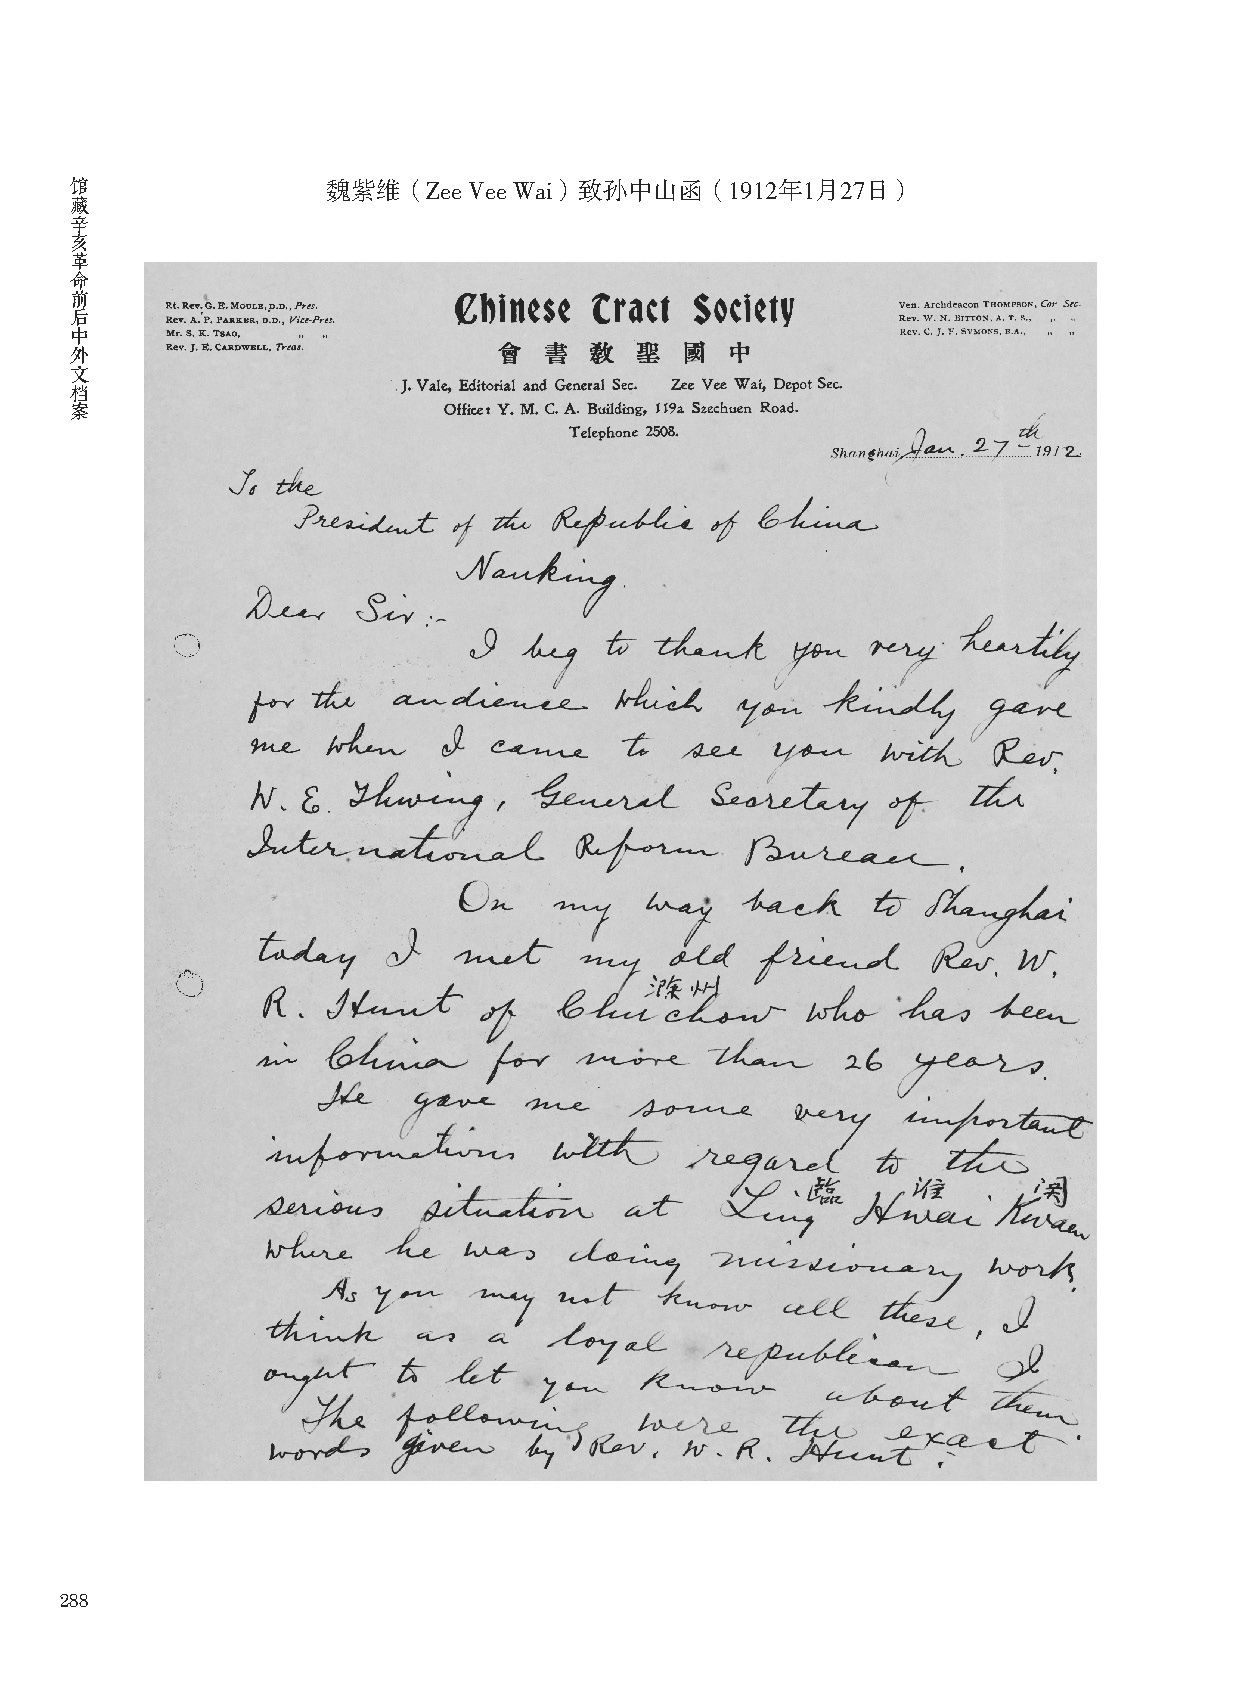 馆藏辛亥革命前后中外文档案
魏紫维（Zee Vee Wai）致孙中山函（1912年1月27日）
Rt. Rev. G. E. MOULE, D.D., Pres.
Rev. A. P. PARKER, D.D., Vice-Pres.
Mr. S. K. TSAO, " "
Rev. J. E. CARDWELL, Treas.
Chinese Tract Society
會書敎聖國中
J. Vale, Editorial and General Sec. Zee Vee Wai, Depot Sec.
Office: Y. M. C. A. Building, 119a Szechuen Road.
Telephone 2508.
Ven. Archdeacon THOMPSON, Cor Sec.
Rev. W. N. BITTON, A. T. S., " "
Rev. C. J. F. SYMONS, B.A., " "
Shanghai, Jan. 27th 1912.
To the
President of the Republic of China
Nanking.
Dear Sir:-
I beg to thank you very heartily
for the audience which you kindly gave
me when I came to see you with Rev.
W. E. Thwing, General Secretary of the
International Reform Bureau.
On my way back to Shanghai
today I met my old friend Rev. W.
滁州
R. Hunt of Chuchow who has been
in China for more than 26 years.
He gave me some very important
informations with regard to the
臨 淮 関
serious situation at Ling Hwai Kwaen
where he was doing missionary work.
As you may not know all these, I
think as a loyal republican I
ought to let you know about them.
The following were the exact
words given by Rev. W. R. Hunt:
288